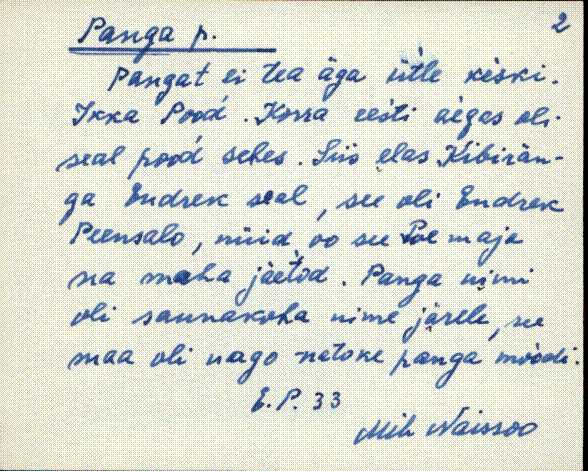 2
Panga p.
Pangat ei tea äga ütle keski.
Ikka Pood. Korra eesti aegas oli
seal pood sehes. Siis elas Kibirän-
ga Endrek seal, see oli Endrek
Peensalo, nüid oo see Poe maja
na maha jäetod. Panga nimi
oli saunakoha nime järele, see
maa oli nago natoke panga moodi.
E.P. 33
Mih Naissoo